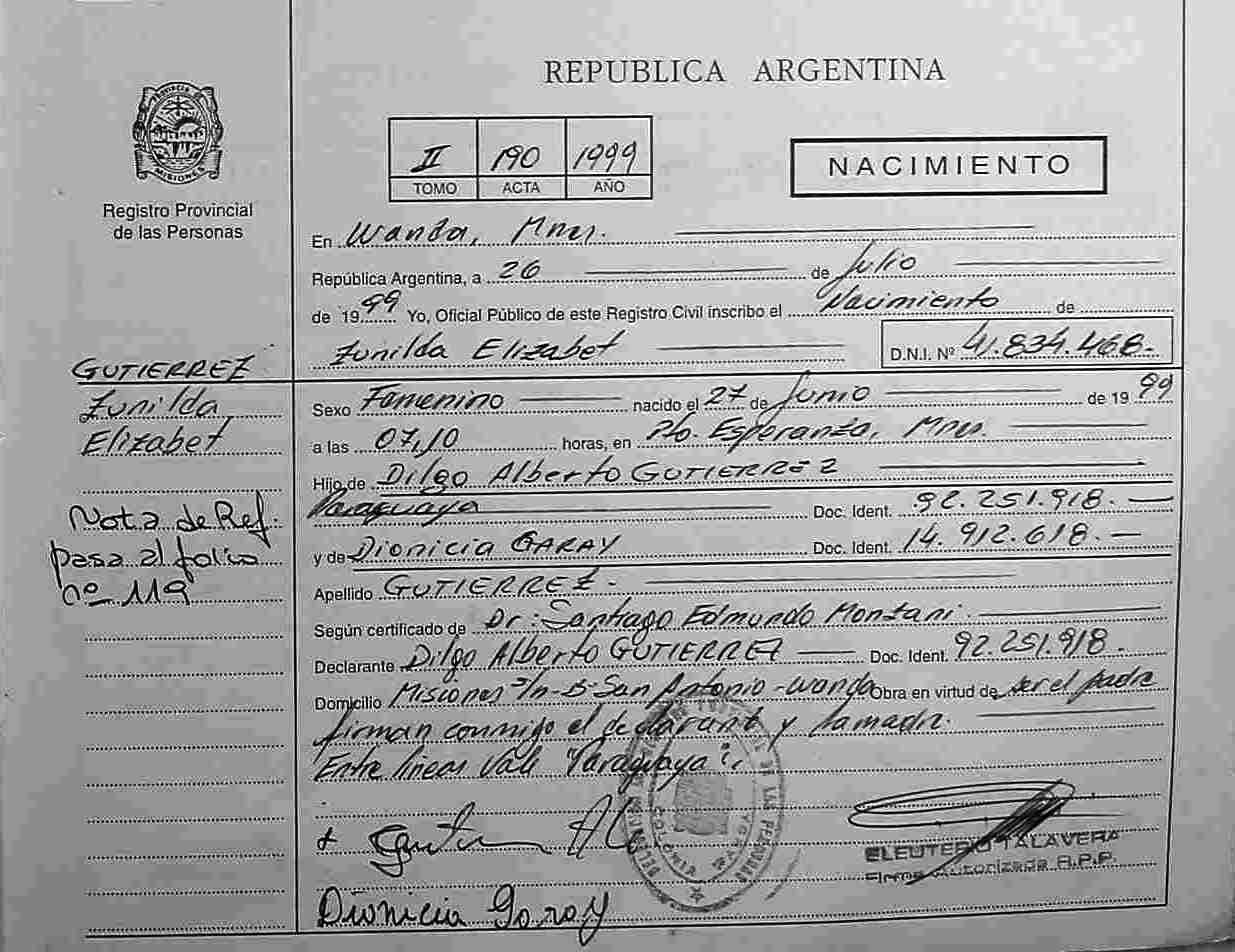 REPUBLICA ARGENTINA
PROVINCIA DE MISIONES
Registro Provincial
de las Personas
II 190 1999
TOMO ACTA AÑO
NACIMIENTO
En Wanda, Mnes.
República Argentina, a 26 de Julio
de 1999 Yo, Oficial Público de este Registro Civil inscribo el Nacimiento de
Zunilda Elizabet D.N.I. Nº 41.834.468.-
GUTIERREZ
Zunilda
Elizabet
Nota de Ref.
pasa al folio
nº 119
Sexo Femenino nacido el 27 de Junio de 1999
a las 07,10 horas, en Pto. Esperanza, Mnes.
Hijo de Dilgo Alberto GUTIERREZ
Paraguaya Doc. Ident. 92.251.918.-
y de Dionicia GARAY Doc. Ident. 14.912.618.-
Apellido GUTIERREZ.
Según certificado de Dr: Santiago Edmundo Monzani.
Declarante Dilgo Alberto GUTIERREZ Doc. Ident. 92.251.918.
Domicilio Misiones S/n-Bº San Antonio-Wanda Obra en virtud de ser el padre
firman conmigo el declarant y la madre.
Entre líneas Vale "Paraguaya".
ELEUTERIO TALAVERA
Firma Autorizada R.P.P.
Dionicia Garay